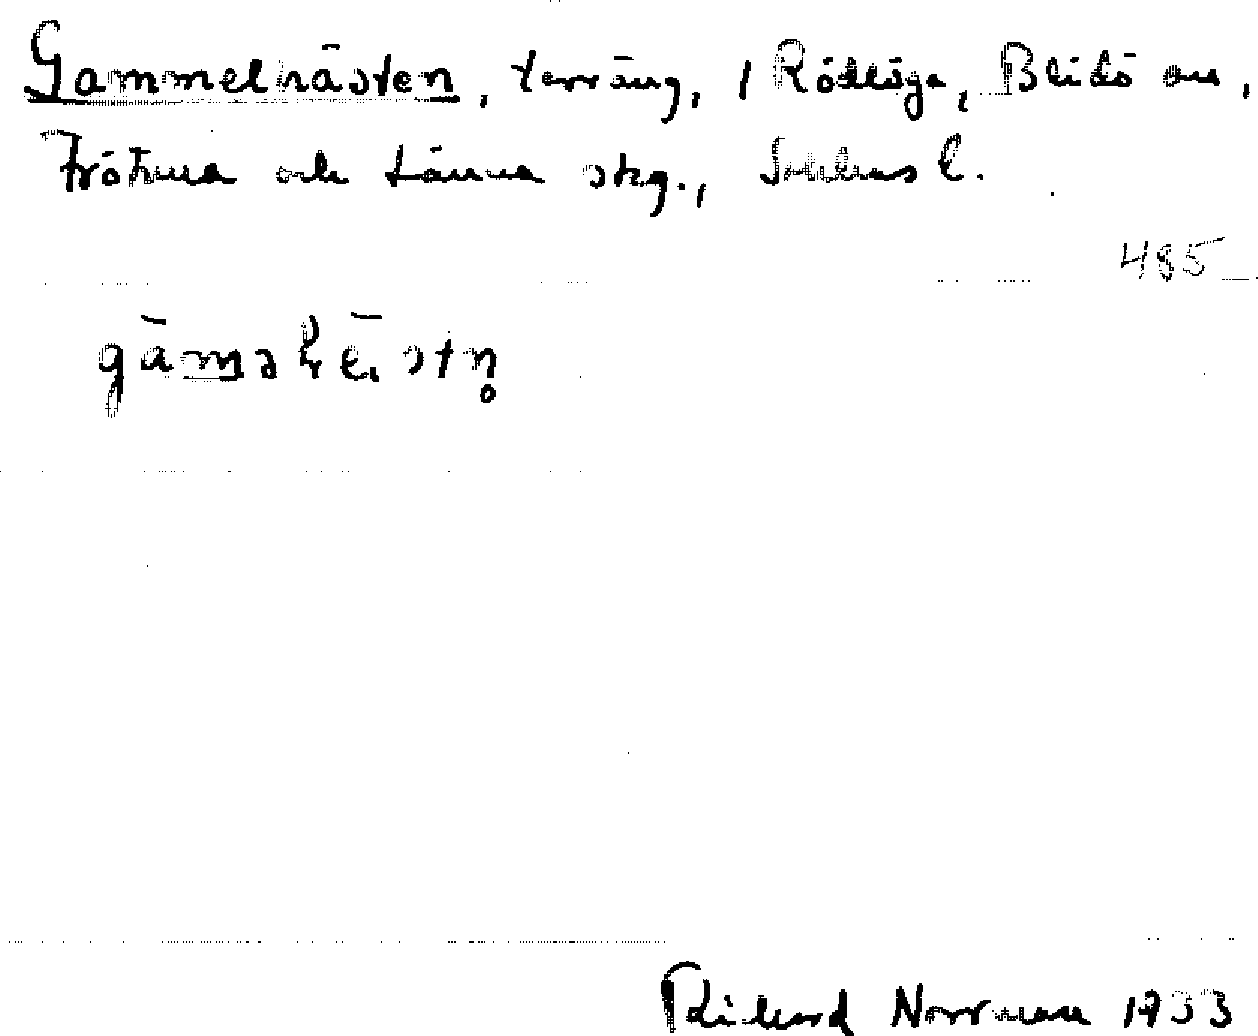 Gammelhästen, terräng, 1 Rödlöga, Blidö sn,
Frötuna och Länna skg., Sthlms l.
485
gāməhē̜stn̥
Rikard Norrman 1933